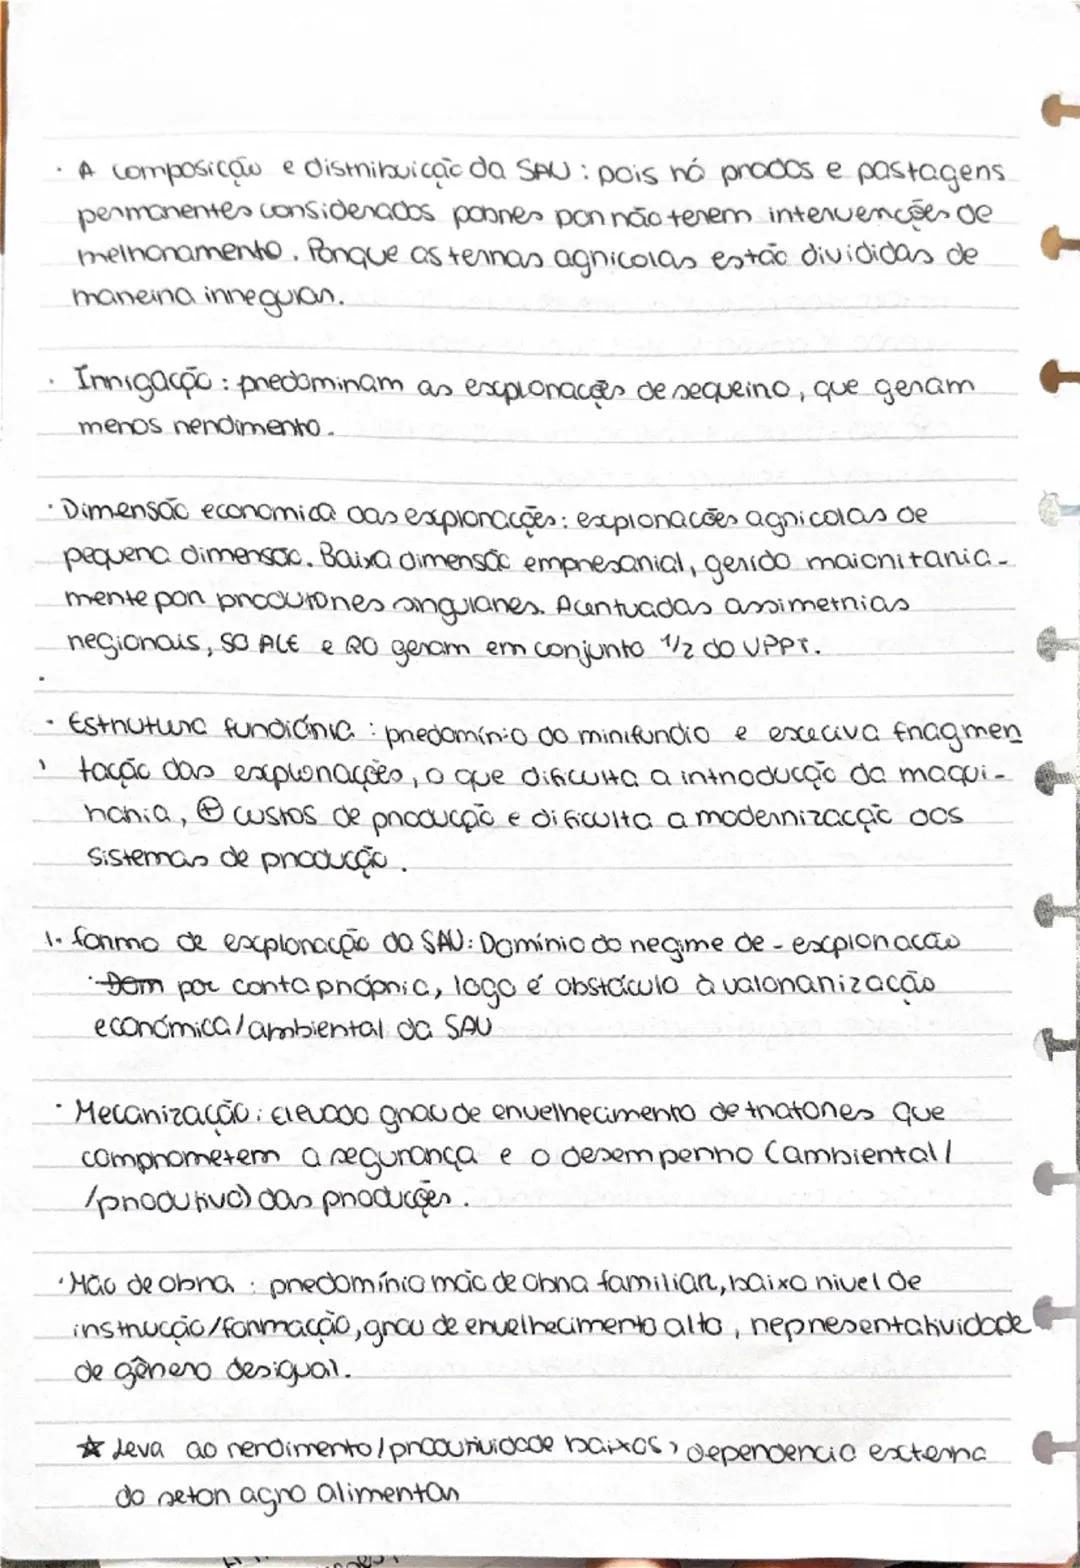 · A composição e distribuição da SAU : pois há prados e pastagens
permanentes considerados pobres por não terem intervenções de
melhoramento. Porque as terras agricolas estão divididas de
maneira irregular.
· Irrigação : predominam as explorações de sequeiro, que geram
menos rendimento.
· Dimensão economica das explorações: explorações agricolas de
pequena dimensão. Baixa dimensão empresarial, gerido maioritaria-
mente por produtores singulares. Acentuadas assimetrias
regionais, só ALE e RO geram em conjunto 1/2 do VPPT.
· Estrutura fundiária : predomínio do minifundio e exceciva fragmen
tação das explorações, o que dificulta a introdução da maqui-
naria, ⊕ custos de produção e dificulta a modernização dos
sistemas de produção.
1. forma de exploração da SAU: Domínio do regime de - exploração
por conta própria, logo é obstáculo à valoranização
económica/ambiental da SAU
· Mecanização: elevado grau de envelhecimento de tratores que
comprometem a segurança e o desempenho (ambiental/
/produtivo) das produções.
· Mão de obra : predomínio mão de obra familiar, baixo nivel de
instrucção/formação, grau de envelhecimento alto, representatividade
de gênero desigual.
☆ Leva ao rendimento/produtividade baixos, dependencia externa
do setor agro alimentar